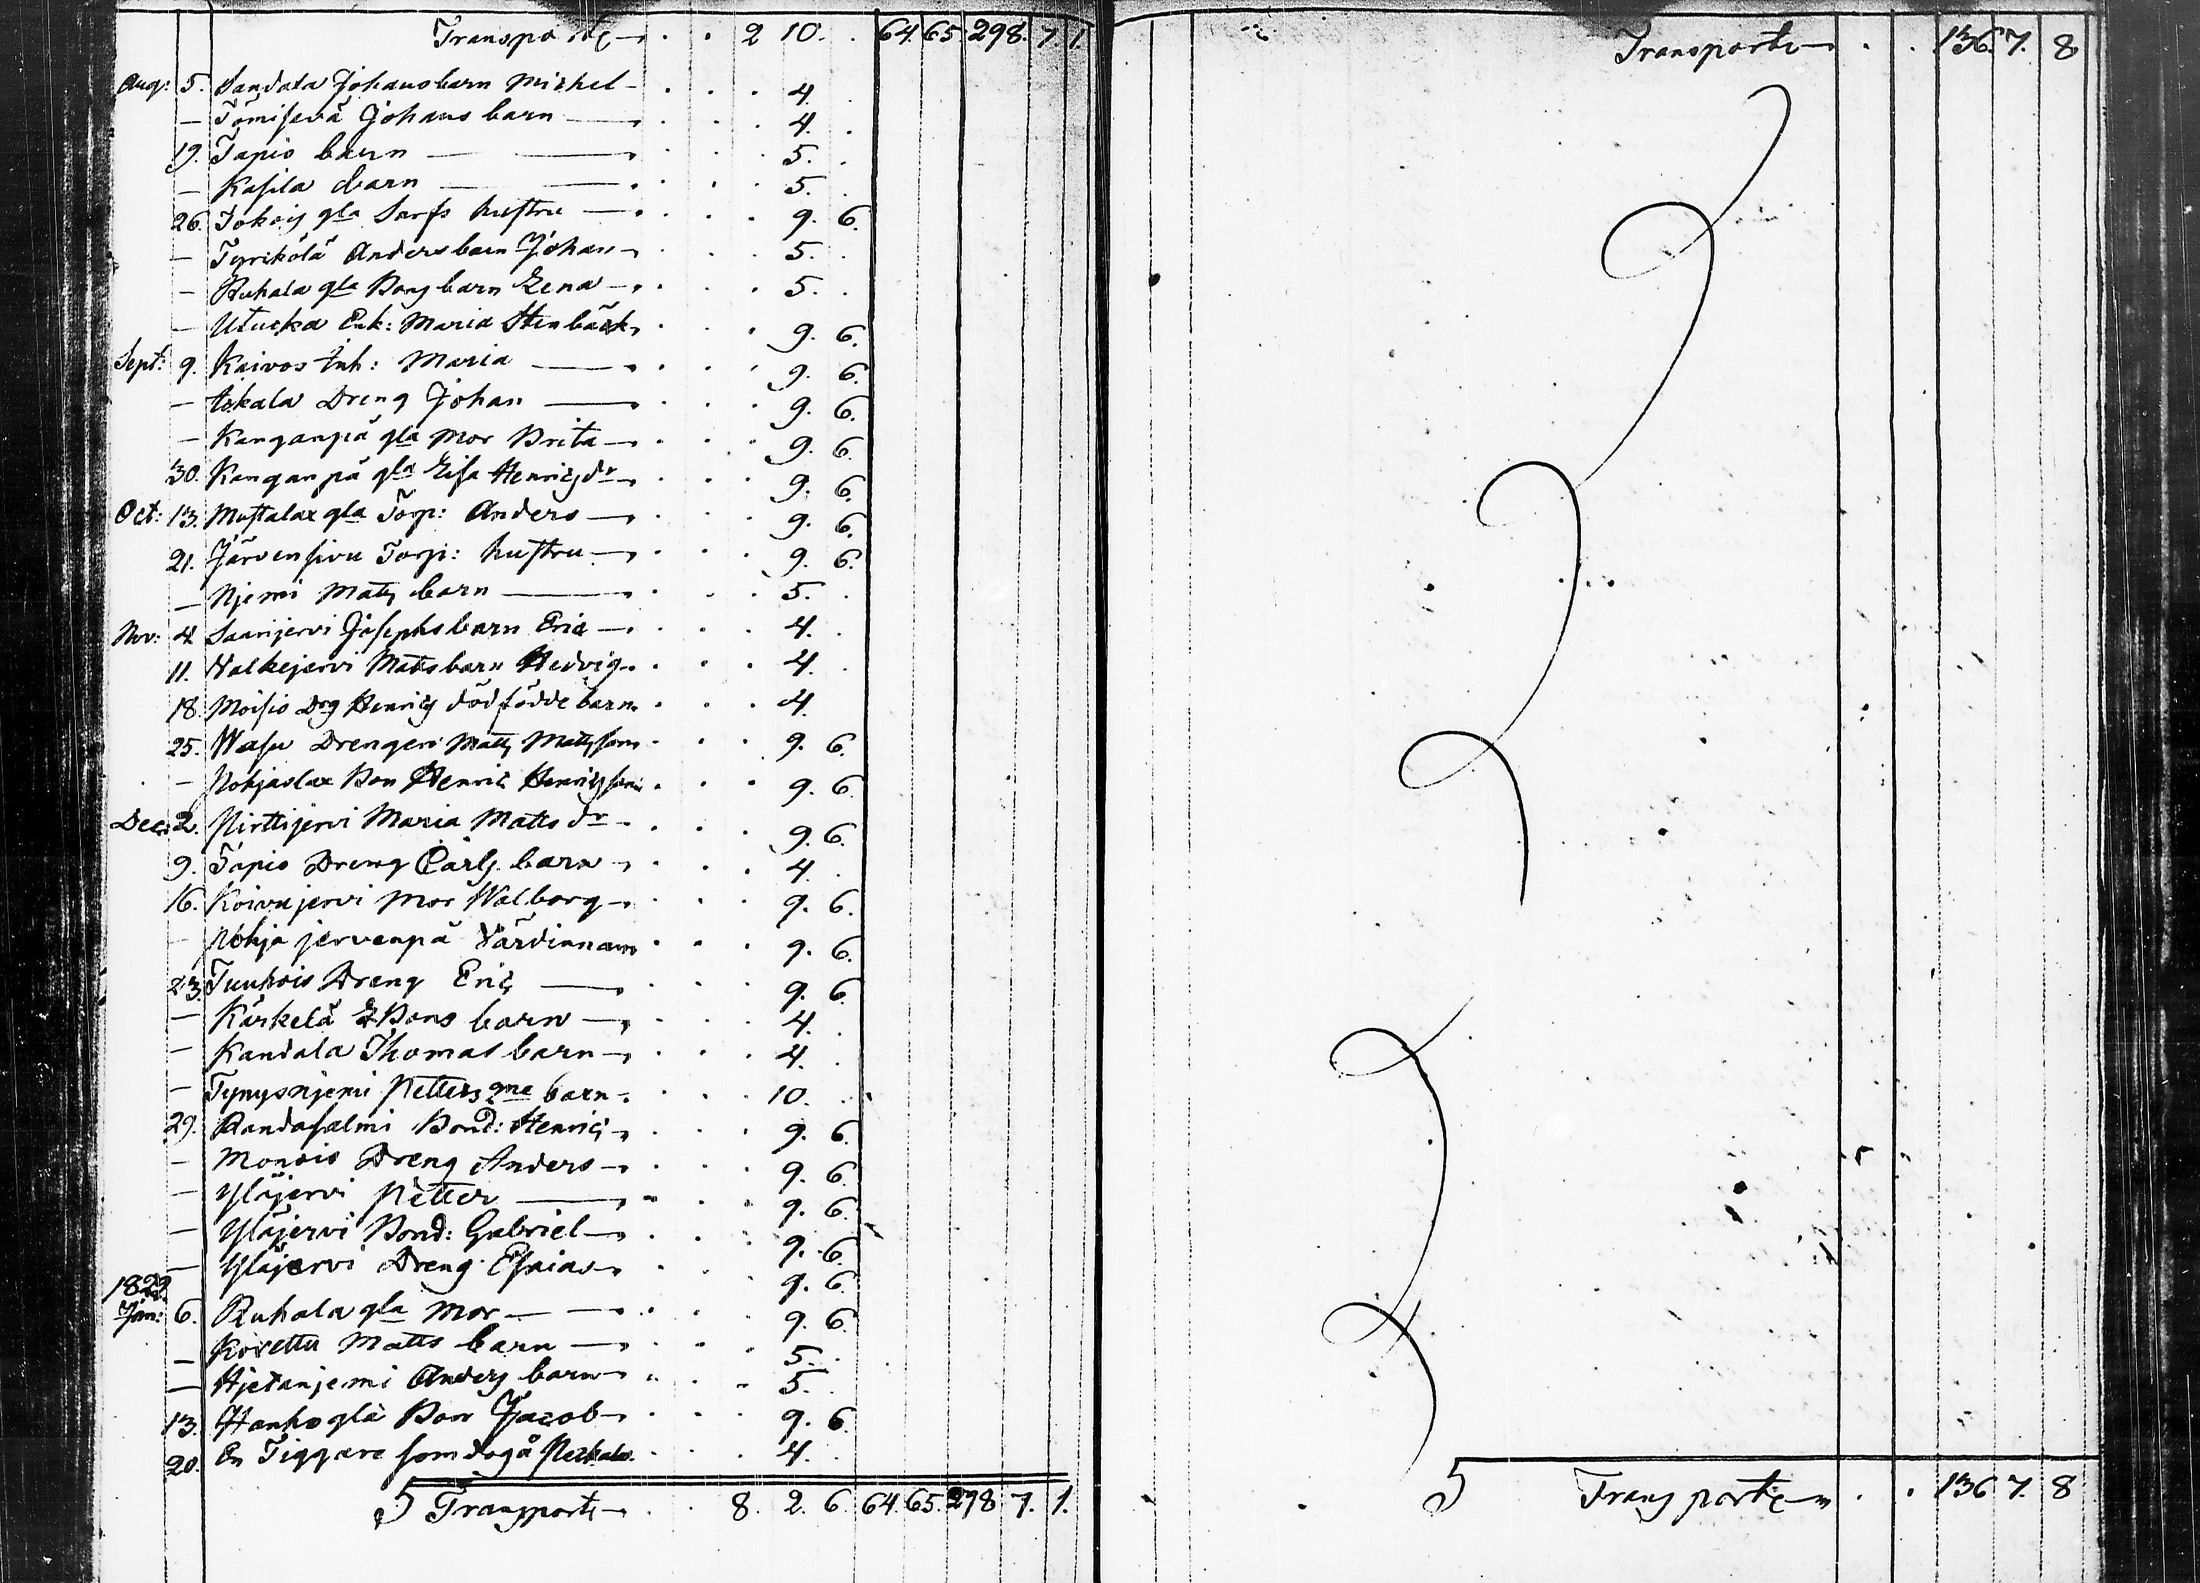 Transporte 2 10. 64. 65 298. 7. 1
Aug: 5. Sandala Johans barn Michel 4.
— Tömisevä Johans barn 4.
19. Tapio barn 5.
— Kasila barn 5.
26. Jokois gla hustru 9. 6.
— Tyrikölä Anders barn Johan 5.
— Ruhala gla Bons barn Lena 5.
— Utucka Enk: Maria Stenbäck 9. 6.
Sept: 9. Kaivos Inh: Maria 9. 6.
— Iskala Dreng Johan 9. 6.
— Kanganpä gla Mor Brita 9. 6.
30. Kanganpä gla Lisa Henricsdr 9. 6.
Oct: 13. Mustalax gla Torp: Anders 9. 6.
21. Järvensivu Torp: hustru 9. 6.
— Njemi Matts barn 5.
Nov: 4 Saarijervi Josephs barn Eric 4.
11. Valkejervi Matts barn Hedvig 4.
18. Moisio Drg Henrics dödfödde barn 4.
25. Wasu Drengen Matts Mattsson 9. 6.
— Pohjaslax Bon Henric Henricsson 9. 6.
Dec: 2. Pirttijervi Maria Matts dr 9. 6.
9. Tapio Dreng Carls barn 4.
16. Koivujervi Mor Walborg 9. 6.
— Pohja jervenpä Värdinnan 9. 6.
23. Tuuhois Dreng Eric 9. 6.
— Kärkelä Bons barn 4.
— Kandala Thomas barn 4.
— Tynysnjemi Petters 2ne barn 10.
29. Randasalmi Bond: Henric 9. 6.
— Monois Dreng Anders 9. 6.
— Yläjervi Petter 9. 6.
— Yläjervi Bond: Gabriel 9. 6.
— Yläjervi Dreng Esaias 9. 6.
1822.
Jan: 6. Ruhala gla Mor 9. 6.
— Korettu Matts barn 5.
— Hjetanjemi Anders barn 5.
13. Hanho gla Bon Jacob 9. 6
20. En Tiggare som dog å 4.
Transporte 8. 2. 6. 64. 65. 298 7. 1.
Transporte 136. 7. 8
Transporte 136 7. 8